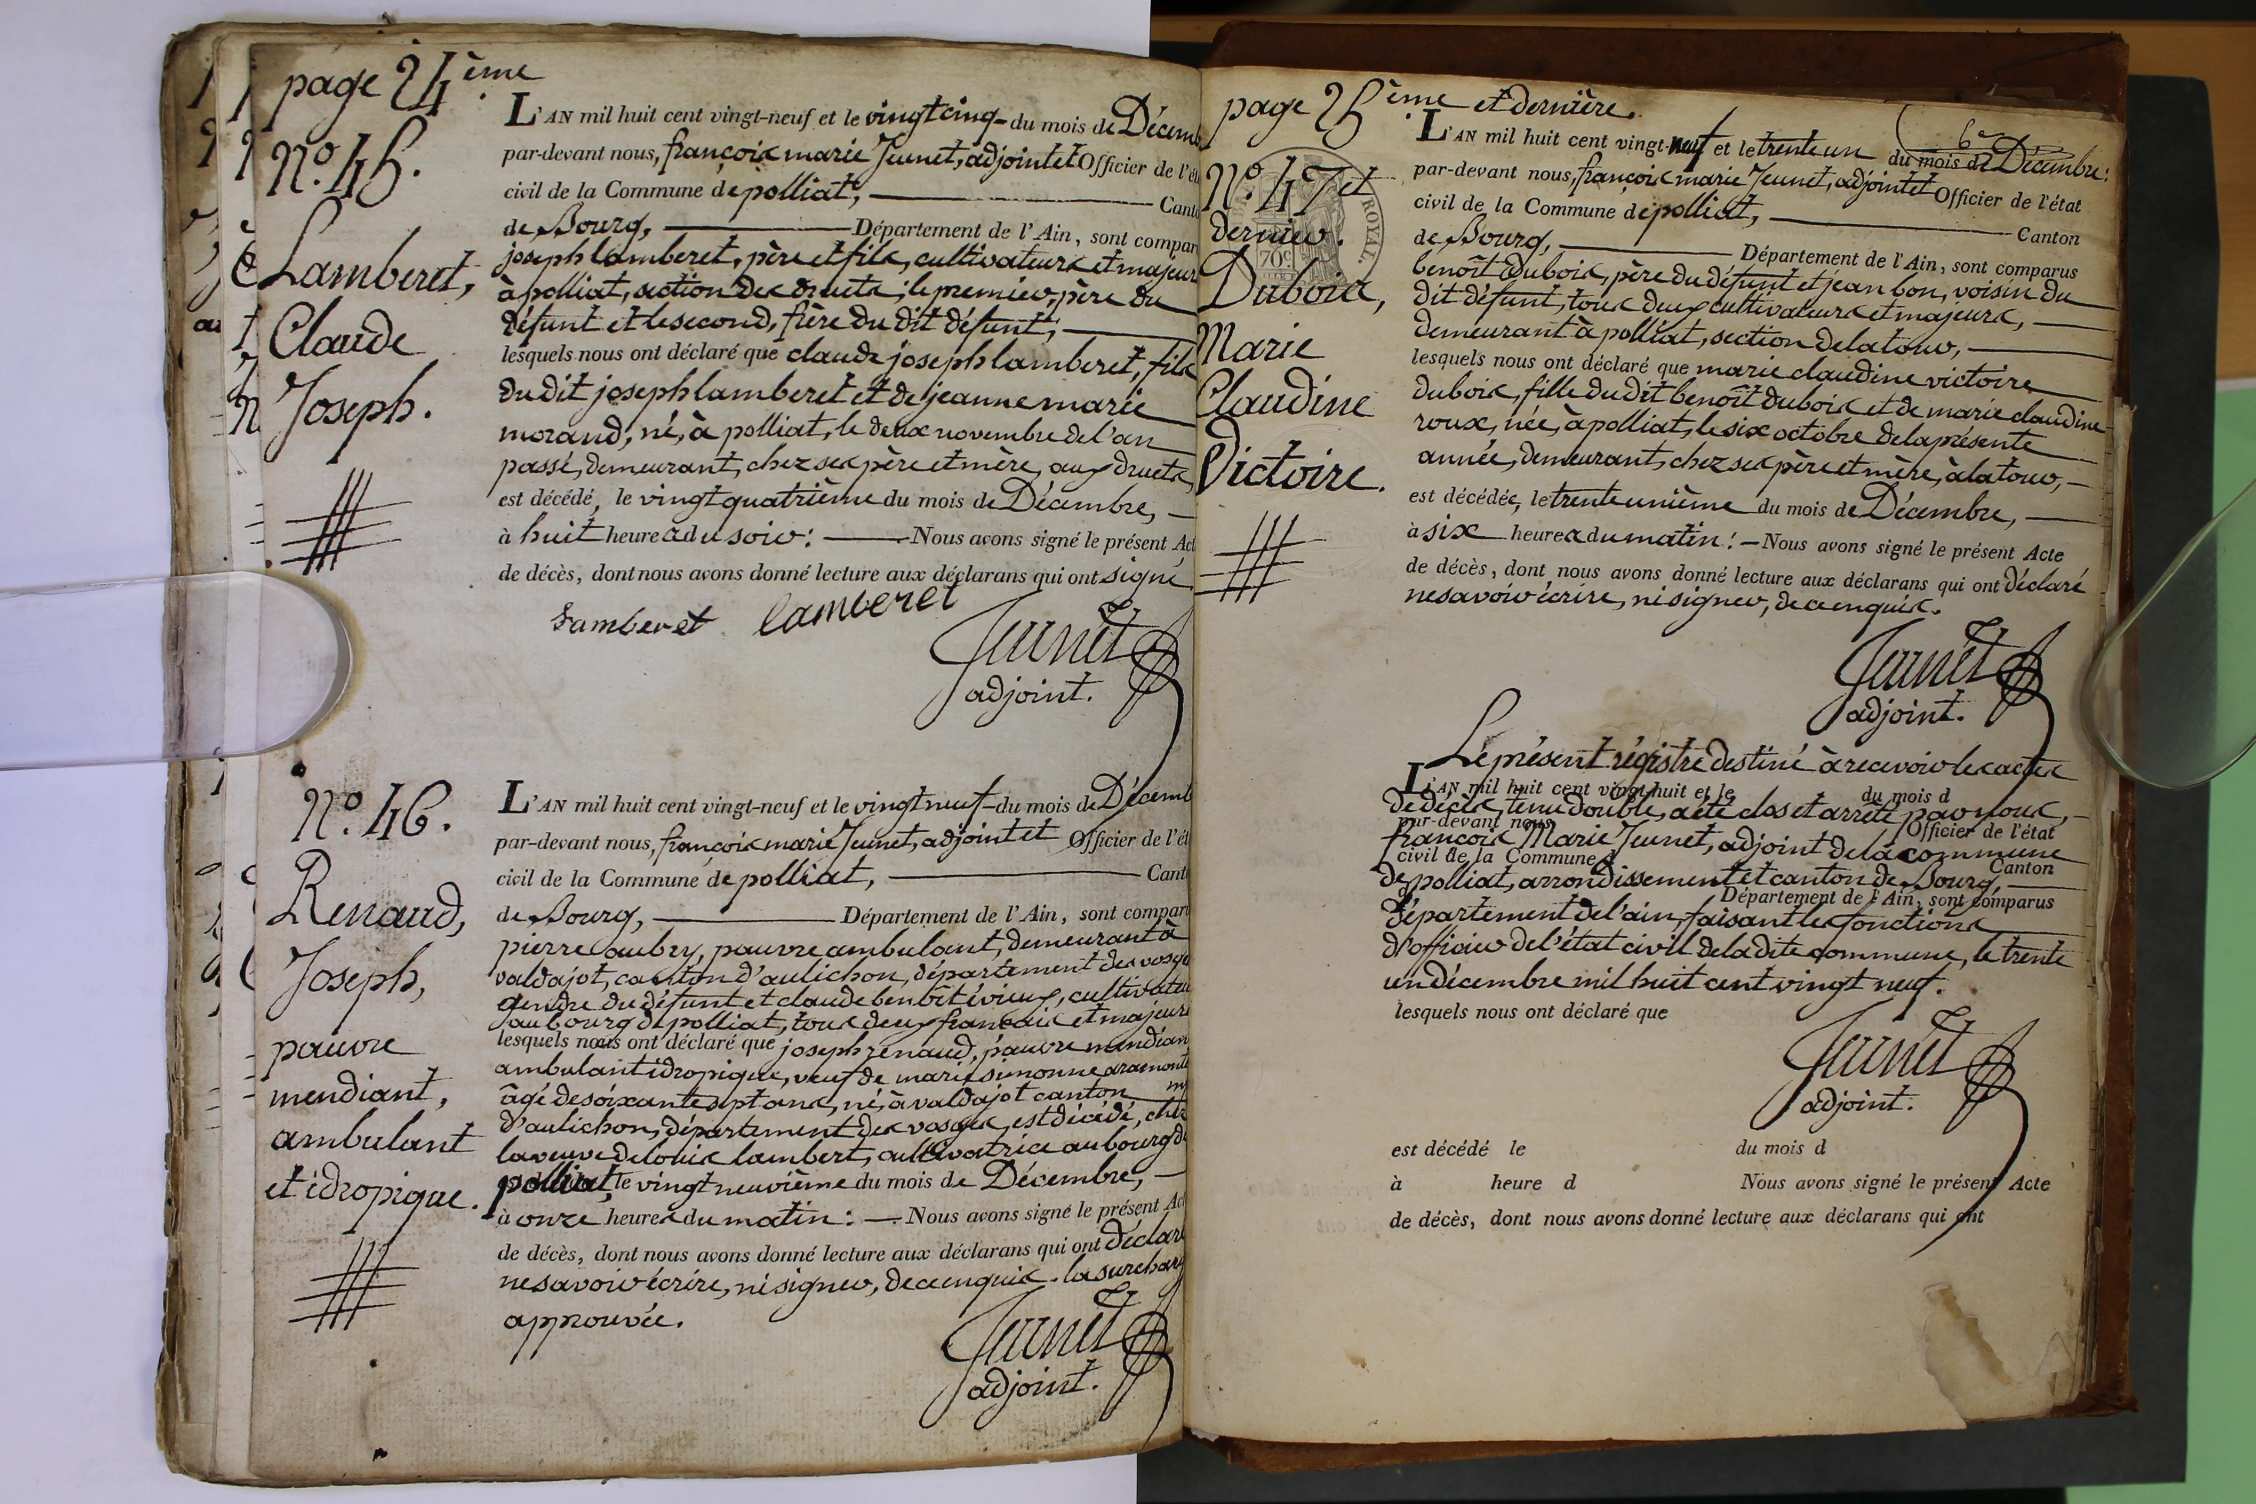 page 24ème
N.º 45.
Lamberet,
Claude
Joseph.
L'AN mil huit cent vingt-neuf et le vingt cinq du mois de Décem
par-devant nous, françois marie Jeunet, adjoint et Officier de l'ét
civil de la Commune de polliat, Cant
de Bourg, Département de l'Ain, sont compar
joseph lamberet, père et fils, cultivateurs et majeur
à polliat, section des druets; le premier, père du
défunt et le second, frère du dit défunt;
lesquels nous ont déclaré que claude joseph lamberet, fils
du dit joseph lamberet et de jeanne marie
morand, né, à polliat, le deux novembre de l'an
passé, demeurant, chez ses père et mère, aux druets,
est décédé, le vingt quatrième du mois de Décembre,
à huit heures du soir: Nous avons signé le présent Act
de décès, dont nous avons donné lecture aux déclarans qui ont signé
Lamberet lamberet
Jeunet
adjoint.
N.º 46.
Renaud,
Joseph,
pauvre
mendiant,
ambulant
et idropique.
L'AN mil huit cent vingt-neuf et le vingt neuf du mois de Décemb
par-devant nous, françois marie Jeunet, adjoint et Officier de l'ét
civil de la Commune de polliat, Cant
de Bourg, Département de l'Ain, sont compar
pierre aubry, pauvre ambulant, demeurant à
valdajot, canton d'aulichon, département des vosge
gendre du défunt et claude benoît évieux, cultivateu
au bourg de polliat, tous deux français et majeurs
lesquels nous ont déclaré que joseph renaud, pauvre mendian
ambulant idropique, veuf de marie simonne aramont
âgé de soixante sept ans, né, à valdajot canton
d'aulichon, département des vosges, est décédé, chez
la veuve de louis lambert, cultivatrice au bourg de
polliat, le vingt neuvième du mois de Décembre,
à onze heures du matin: Nous avons signé le présent Ac
de décès, dont nous avons donné lecture aux déclarans qui ont déclar
ne savoir écrire, ni signer, de ce enquis. la surchar
approuvée.
Jeunet
adjoint.
page 25ème et dernière.
6e
N.º 47 et
dernier.
ROYAL
70c
Dubois,
Marie
Claudine
Victoire.
L'AN mil huit cent vingt-neuf et le trente un du mois de Décembre:
par-devant nous, françois marie Jeunet, adjoint et Officier de l'état
civil de la Commune de polliat, Canton
de Bourg, Département de l'Ain, sont comparus
benoît dubois, père du défunt et jean bon, voisin du
dit défunt, tous deux cultivateurs et majeurs,
demeurant à polliat, section de la tour,
lesquels nous ont déclaré que marie claudine victoire
dubois, fille du dit benoît dubois et de marie claudine
roux, née, à polliat, le six octobre de la présente
année, demeurant, chez ses père et mère, à la tour,
est décédée, le trente unième du mois de Décembre,
à six heures du matin: Nous avons signé le présent Acte
de décès, dont nous avons donné lecture aux déclarans qui ont déclaré
ne savoir écrire, ni signer, de ce enquis.
Jeunet
adjoint.
Le présent régistre destiné à recevoir les actes
L'AN mil huit cent vingt-huit et le du mois d
de décès, tenu double, a été clos et arrêté par nous,
par-devant nous, Officier de l'état
françois Marie Jeunet, adjoint de la commune
civil de la Commune d Canton
de polliat, arrondissement et canton de Bourg,
d Département de l'Ain, sont comparus
département de l'ain, faisant les fonctions
d'officier de l'état civil de la dite commune, le trente
un décembre mil huit cent vingt neuf.
lesquels nous ont déclaré que
Jeunet
adjoint.
est décédé le du mois d
à heure d Nous avons signé le présent Acte
de décès, dont nous avons donné lecture aux déclarans qui ont